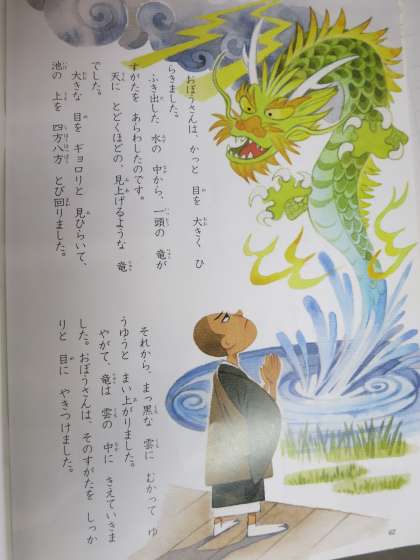 おぼうさんは、かっと 目を 大きく ひ
らきました。
ふき出した 水の 中から、一頭の 竜が
すがたを あらわしたのです。
天に とどくほどの、見上げるような 竜
でした。
大きな 目を ギョロリと 見ひらいて、
池の 上を 四方八方 とび回りました。
それから、まっ黒な 雲に むかって ゆ
うゆうと まい上がりました。
やがて、竜は 雲の 中に きえていきま
した。おぼうさんは、そのすがたを しっか
りと 目に やきつけました。
62